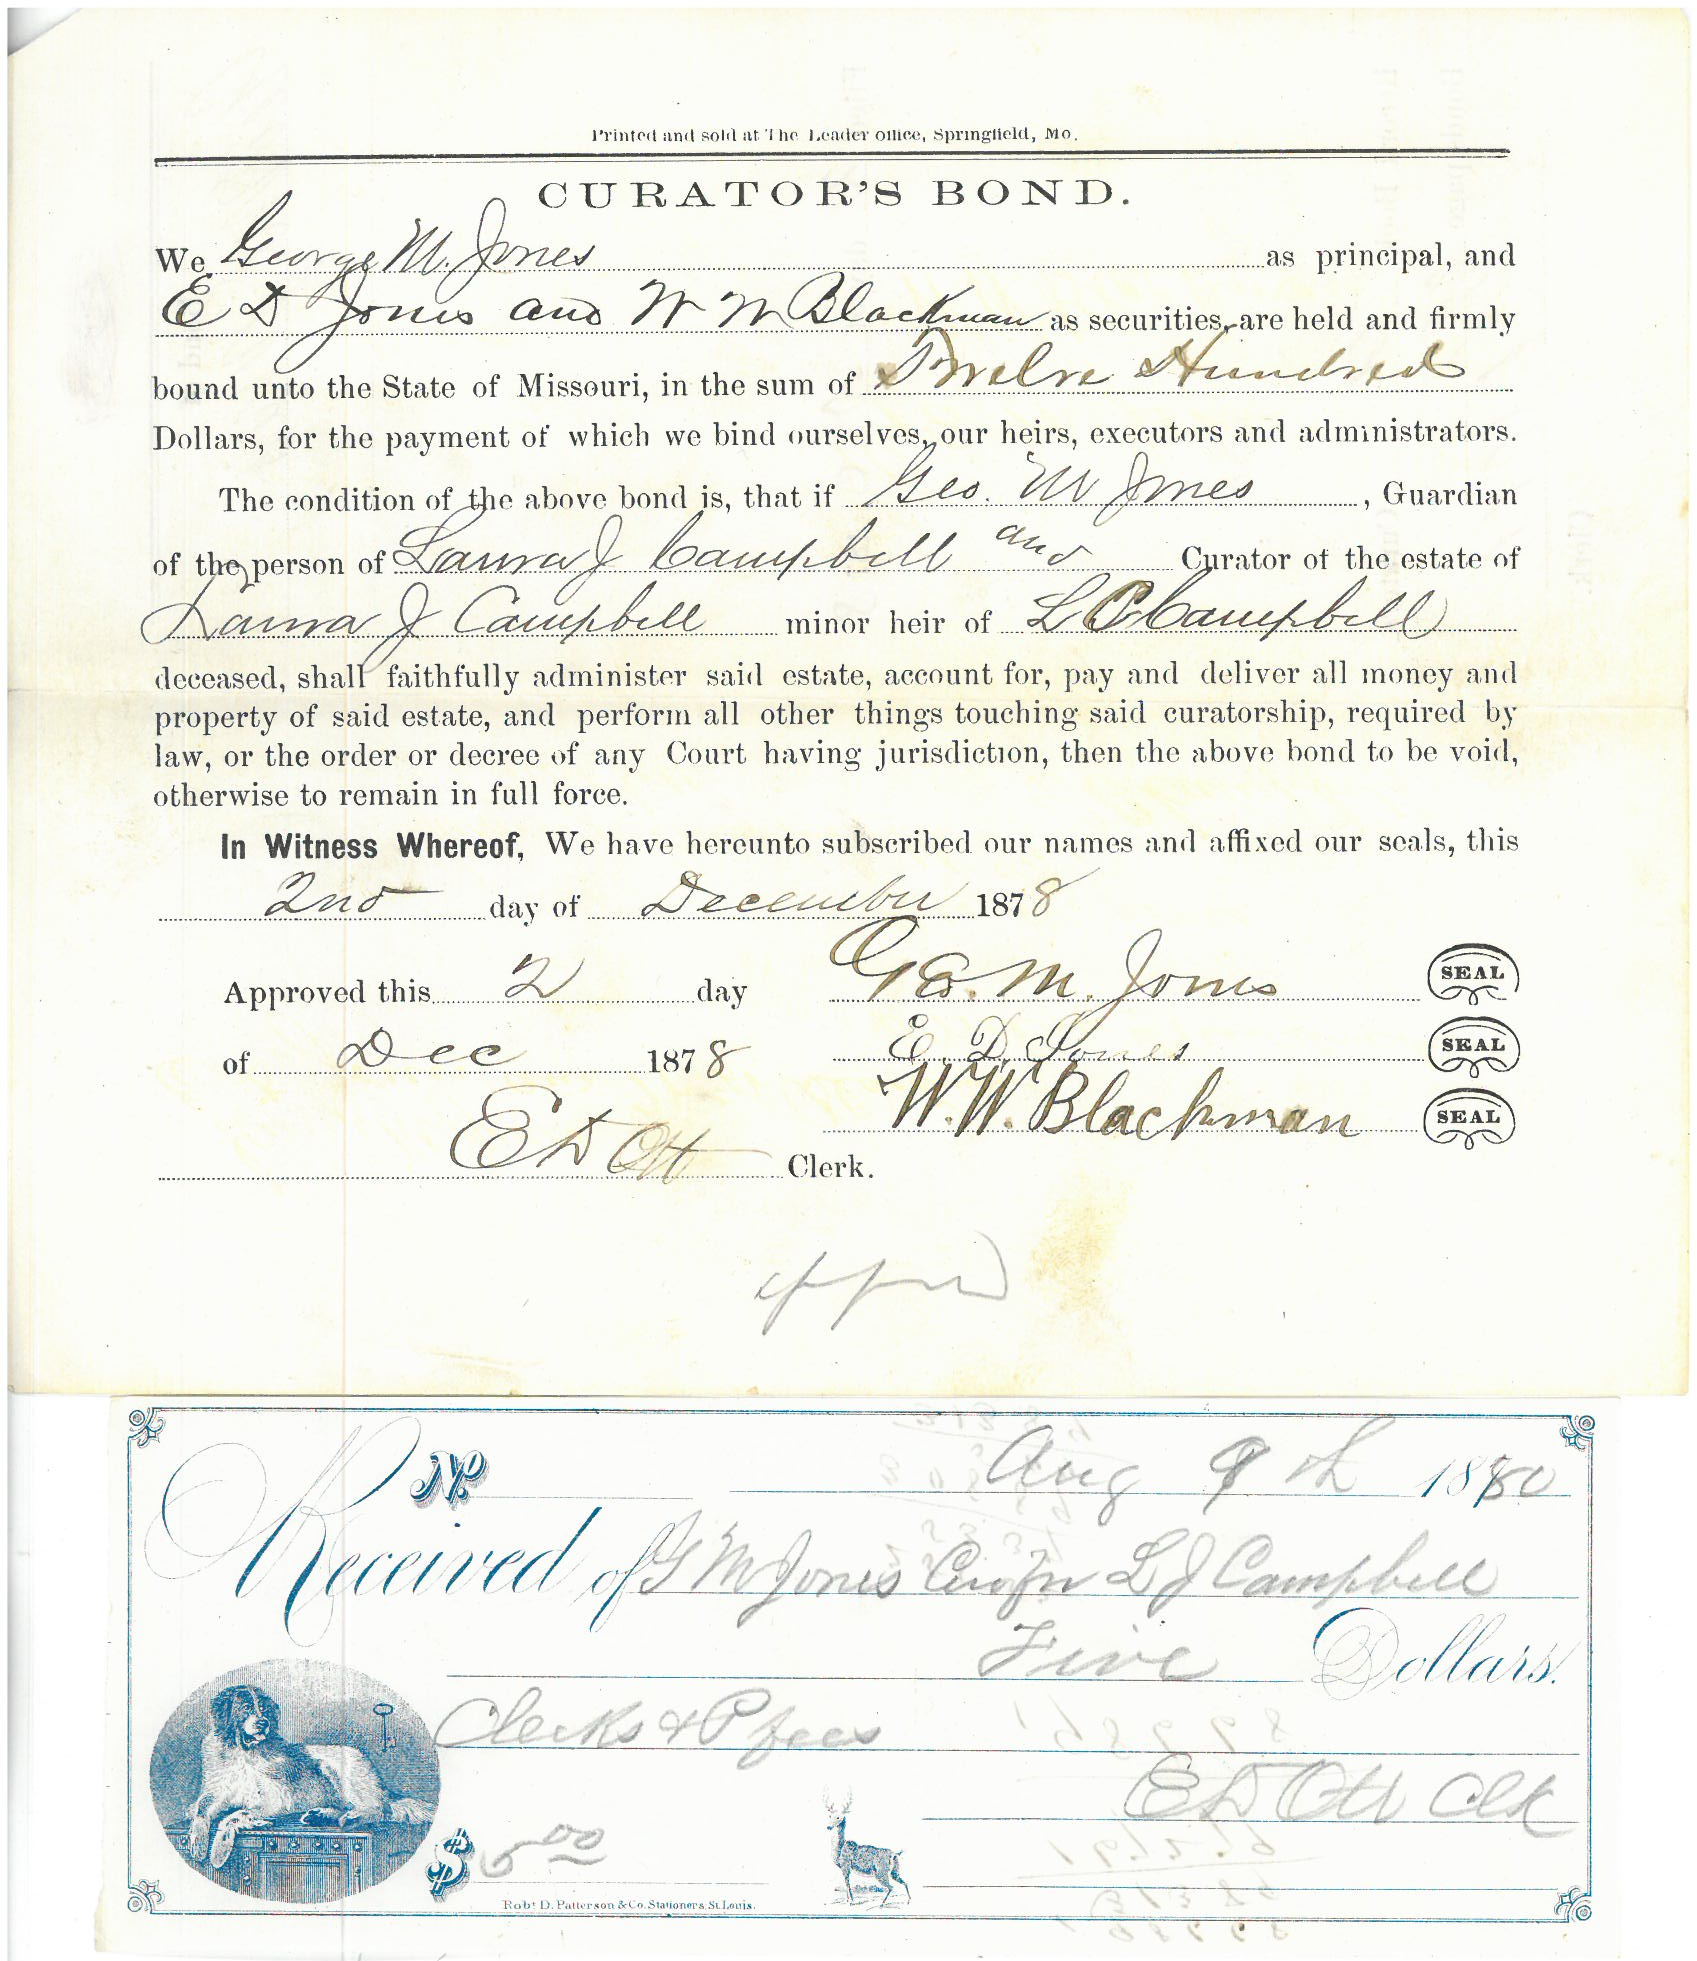 Printed and sold at The Leader office, Springfield, Mo.
CURATOR'S BOND.
We George M. Jones as principal, and
E D Jones and W W Blackman as securities, are held and firmly
bound unto the State of Missouri, in the sum of Twelve Hundred
Dollars, for the payment of which we bind ourselves, our heirs, executors and administrators.
The condition of the above bond is, that if Geo. M Jones , Guardian
of the person of Laura J Campbell and Curator of the estate of
Laura J Campbell minor heir of L C Campbell
deceased, shall faithfully administer said estate, account for, pay and deliver all money and
property of said estate, and perform all other things touching said curatorship, required by
law, or the order or decree of any Court having jurisdiction, then the above bond to be void,
otherwise to remain in full force.
In Witness Whereof, We have hereunto subscribed our names and affixed our seals, this
2nd day of December 1878
Approved this 2 day Geo. M. Jones SEAL
of Dec 1878 E. D. Jones SEAL
W. W. Blackman SEAL
E D Ott Clerk.
No. Aug 9th 1880
Received of G M Jones Cur for L J Campbell
Five Dollars.
Clerks & P fees
E D Ott Clk
$ 5 00
Robt. D. Patterson & Co. Stationers, St. Louis.